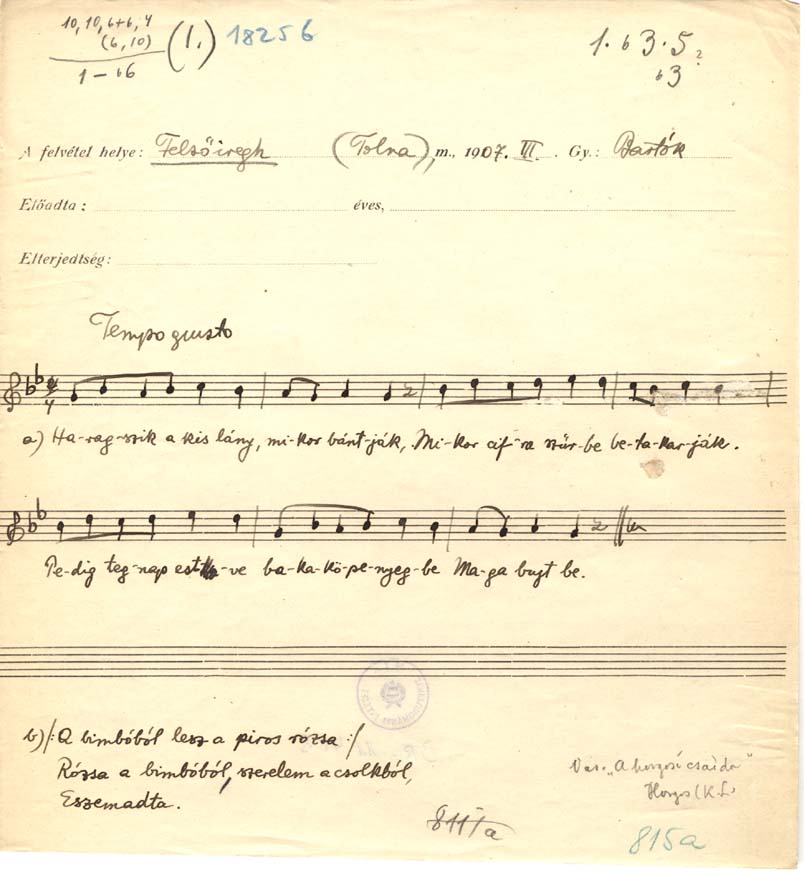 10, 10, 6+6, 4
(6, 10)
1 – b6
(1.) 18256
1. b3. 5.
b3 ?
A felvétel helye: Felsőiregh (Tolna), m., 1907. VI. Gy.: Bartók
Előadta: éves,
Elterjedtség:
Tempo giusto
a) Ha-rag-szik a kis lány, mi-kor bánt-ják, Mi-kor cif-ra szűr-be be-ta-kar-ják.
Pe-dig teg-nap est-ve ba-ka-kö-pe-nyeg-be Ma-ga bujt be.
b) /: A bimbóból lesz a piros rózsa :/
Rózsa a bimbóból, szerelem a csolkból,
Eszemadta.
Var. „A horgosi csárda"
Horgos (K. L.)
811/a
815a